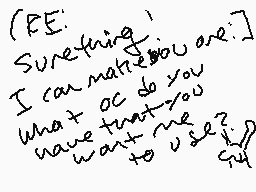 (RE:
Surething!
I can make you one:]
what oc do you
have that you
want me
to use?